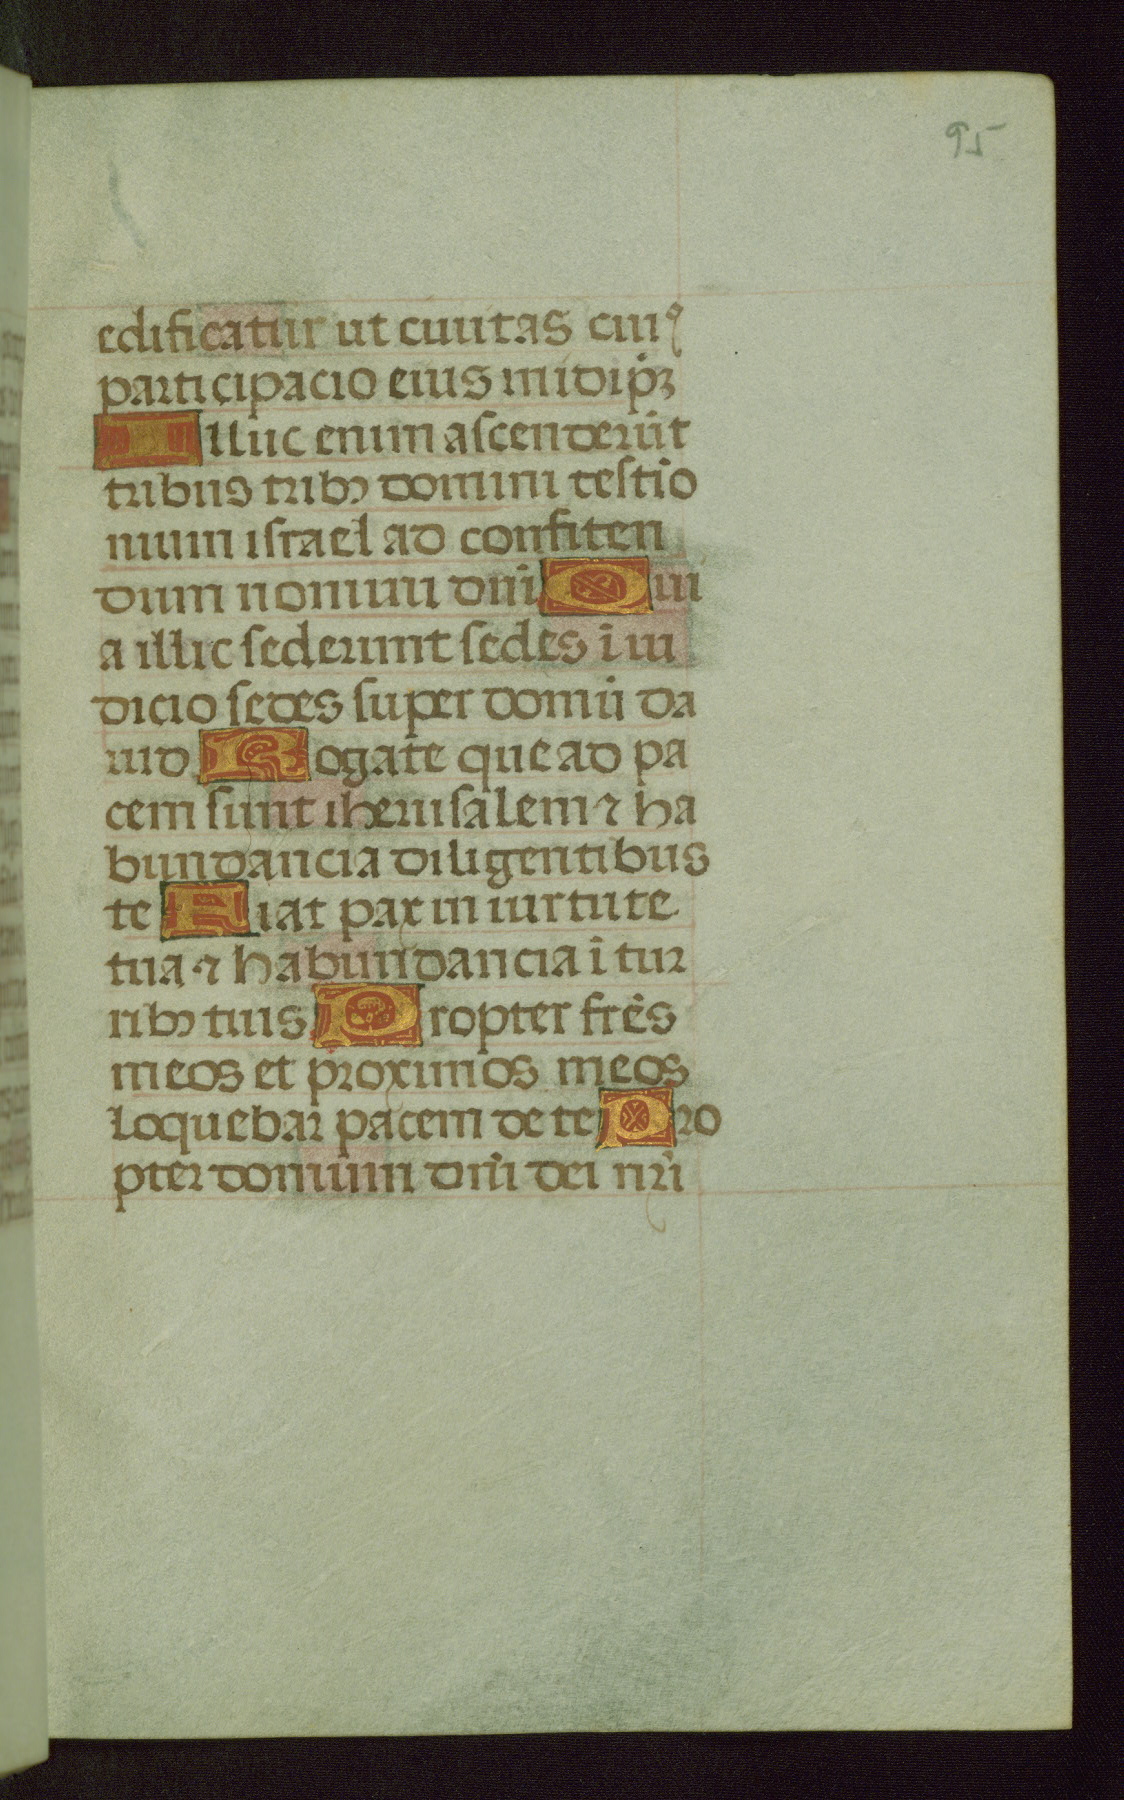 95
edificatur ut ciuitas cuiꝰ
participacio eius in idip̄ꝫ
Illuc enim ascenderūt
tribus tribꝫ domini testīo
nium israel ad confiten
dum nomini dn̄i Qui
a illic sederunt sedes ī iu
dicio sedes super domū da
uid Rogate que ad pa
cem sunt iherusalem ⁊ ha
bundancia diligentibus
te Fiat pax in uirtute
tua ⁊ habundancia ī tur
ribꝫ tuis Propter fr̄es
meos et proximos meos
loquebar pacem de te Pro
pter domum dn̄i dei nr̄i